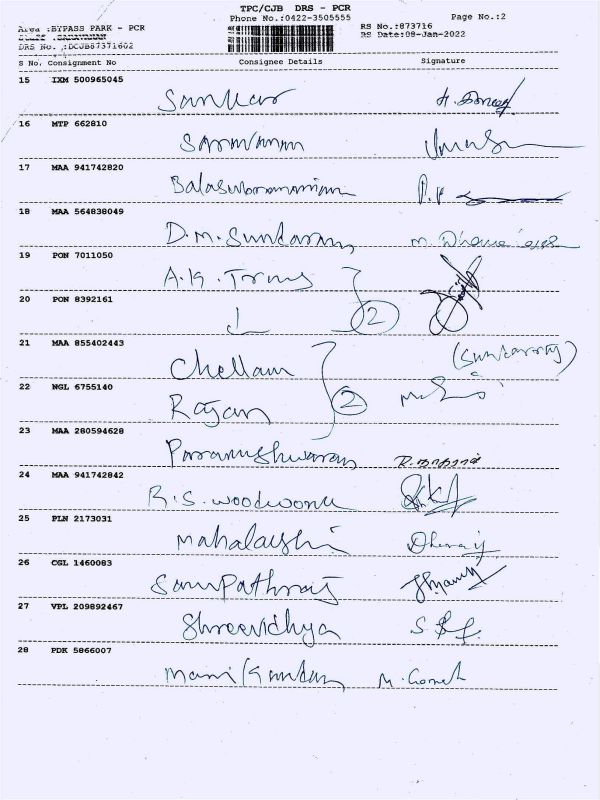 TPC/CJB DRS - PCR
Phone No.:0422-3505555 Page No.:2
Area :BYPASS PARK - PCR RS No.:873716
DRS No. :DCJB87371602 RS Date:08-Jan-2022
S No. Consignment No Consignee Details Signature
15 IXM 500965045 Sankar
16 MTP 662810 Saravanan
17 MAA 941742820 Balasubramaniam
18 MAA 564838049 D.M. Sundaram
19 PON 7011050 A.K.
20 PON 8392161 2
21 MAA 855402443 Chellam (Sundarraj)
22 NGL 6755140 Rajan 2
23 MAA 280594628 Parameshwaran
24 MAA 941742842 R.S.
25 PLN 2173031 Dheraj
26 CGL 1460083 Sampathraj
27 VPL 209892467 Shreevidhya
28 PDK 5866007 Manikandan